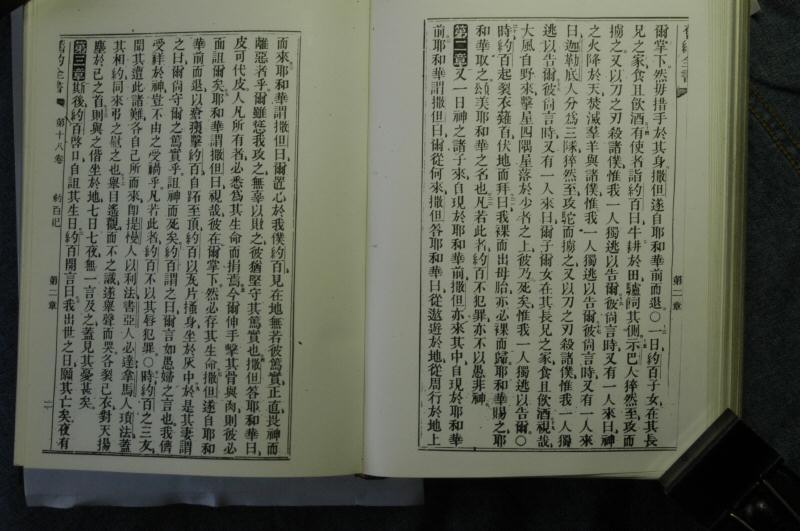 舊約全書
爾掌下然毋措手於其身撒但遂自耶和華前而退○一日約百子女在其長
兄之家食且飲酒有使者詣約百曰牛耕於田驢飼其側示巴人猝然至攻而
擄之又以刀之刃殺諸僕惟我一人獨逃以告爾彼尙言時又有一人來曰神
之火降於天焚滅羣羊與諸僕惟我一人獨逃以告爾彼尙言時又有一人來
曰迦勒底人分爲三隊猝然至攻駝而擄之又以刀之刃殺諸僕惟我一人獨
逃以告爾彼尙言時又有一人來曰爾子爾女在其長兄之家食且飲酒視哉
大風自野來擊屋四隅屋落於少者之上彼乃死矣惟我一人獨逃以告爾○
時約百起裂衣薙首伏地而拜曰我裸而出母胎亦必裸而歸耶和華賜之耶
和華取之頌美耶和華之名也凡若此者約百不犯罪亦不以愚非神
第二章又一日神之諸子來自現於耶和華前撒但亦來其中自現於耶和華
前耶和華謂撒但曰爾從何來撒但答耶和華曰從遨遊於地從周行於地上
第二章
而來耶和華謂撒但曰爾置心於我僕約百見在地無若彼篤實正直畏神而
離惡者乎爾雖慫我攻之無辜以敗之彼猶堅守其篤實也撒但答耶和華曰
皮可代皮人凡所有者必悉爲其生命而捐焉今爾伸手擊其骨與肉則彼必
面詛爾矣耶和華謂撒但曰視哉彼在爾掌下然必存其生命撒但遂自耶和
華前而退以瘡瘼擊約百自跖至頂約百以瓦片搔身坐於灰中於是其妻謂
之曰爾尙守爾之篤實乎詛神而死矣約百謂之曰爾言如愚婦之言也我儕
受祥於神豈不由之受禍乎凡若此者約百不以其唇犯罪○時約百之三友
聞其遭此諸難各自己所而來卽提慢人以利法書亞人必達拿馬人瑣法蓋
其相約同來弔之慰之也舉目遙觀而不之識遂衆聲而哭各裂己衣對天揚
塵於己之首則與之偕坐於地七日七夜無一言及之蓋見其憂甚矣
第三章斯後約百啓口自詛其生日約百開言曰我出世之日願其亡矣夜有
舊約全書 第十八卷 約百記 第二章 二